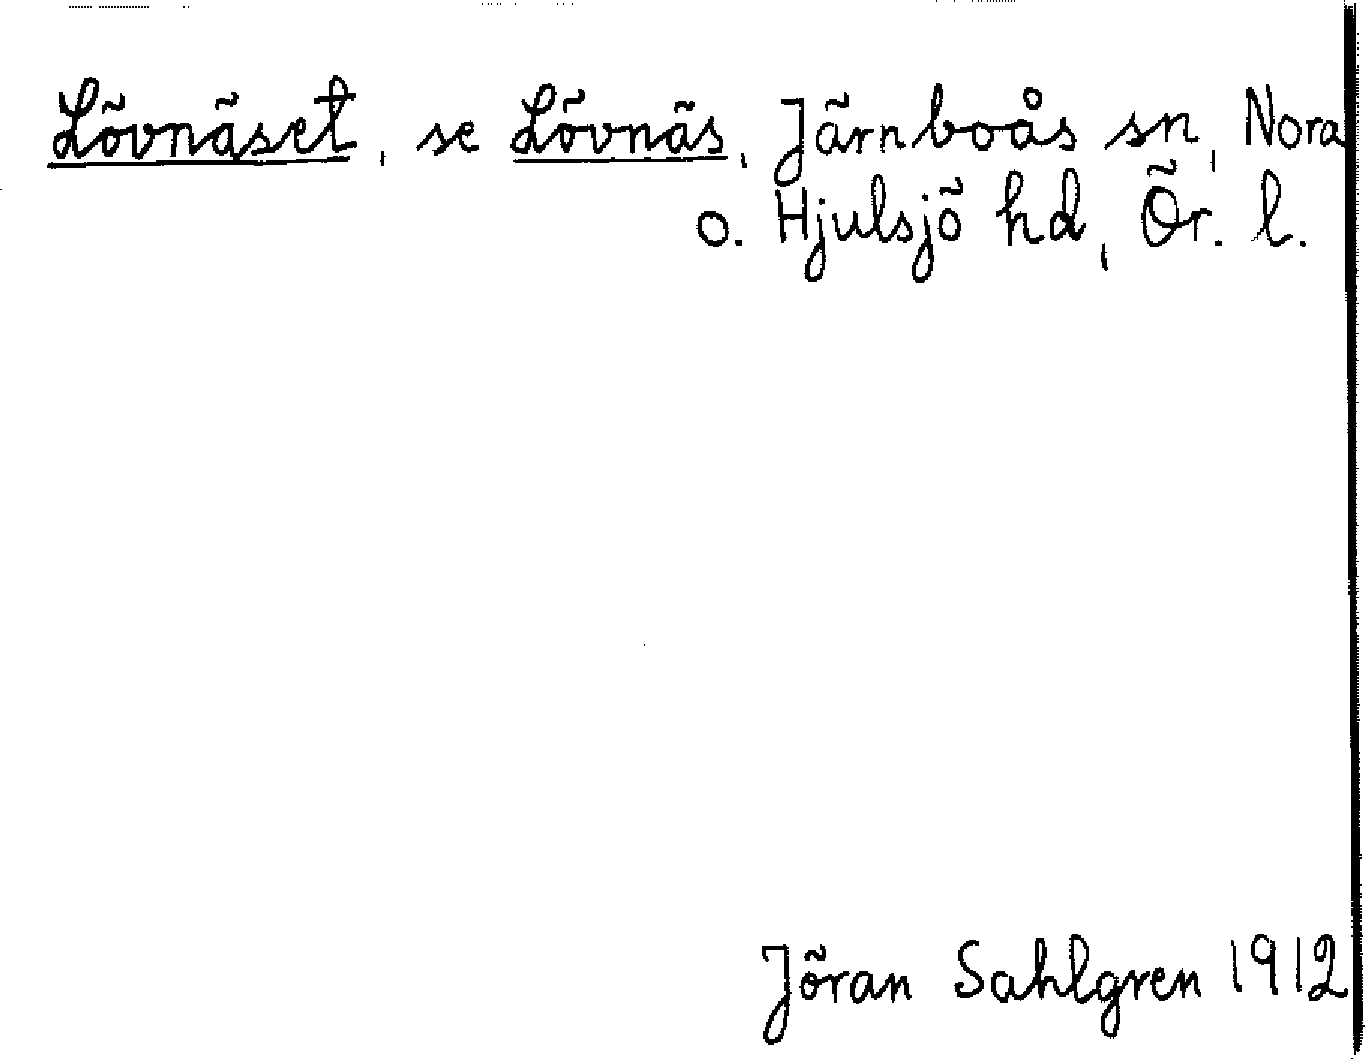 Lövnäset, se Lövnäs, Järnboås sn, Nora
o. Hjulsjö hd, Ör. l.
Jöran Sahlgren 1912